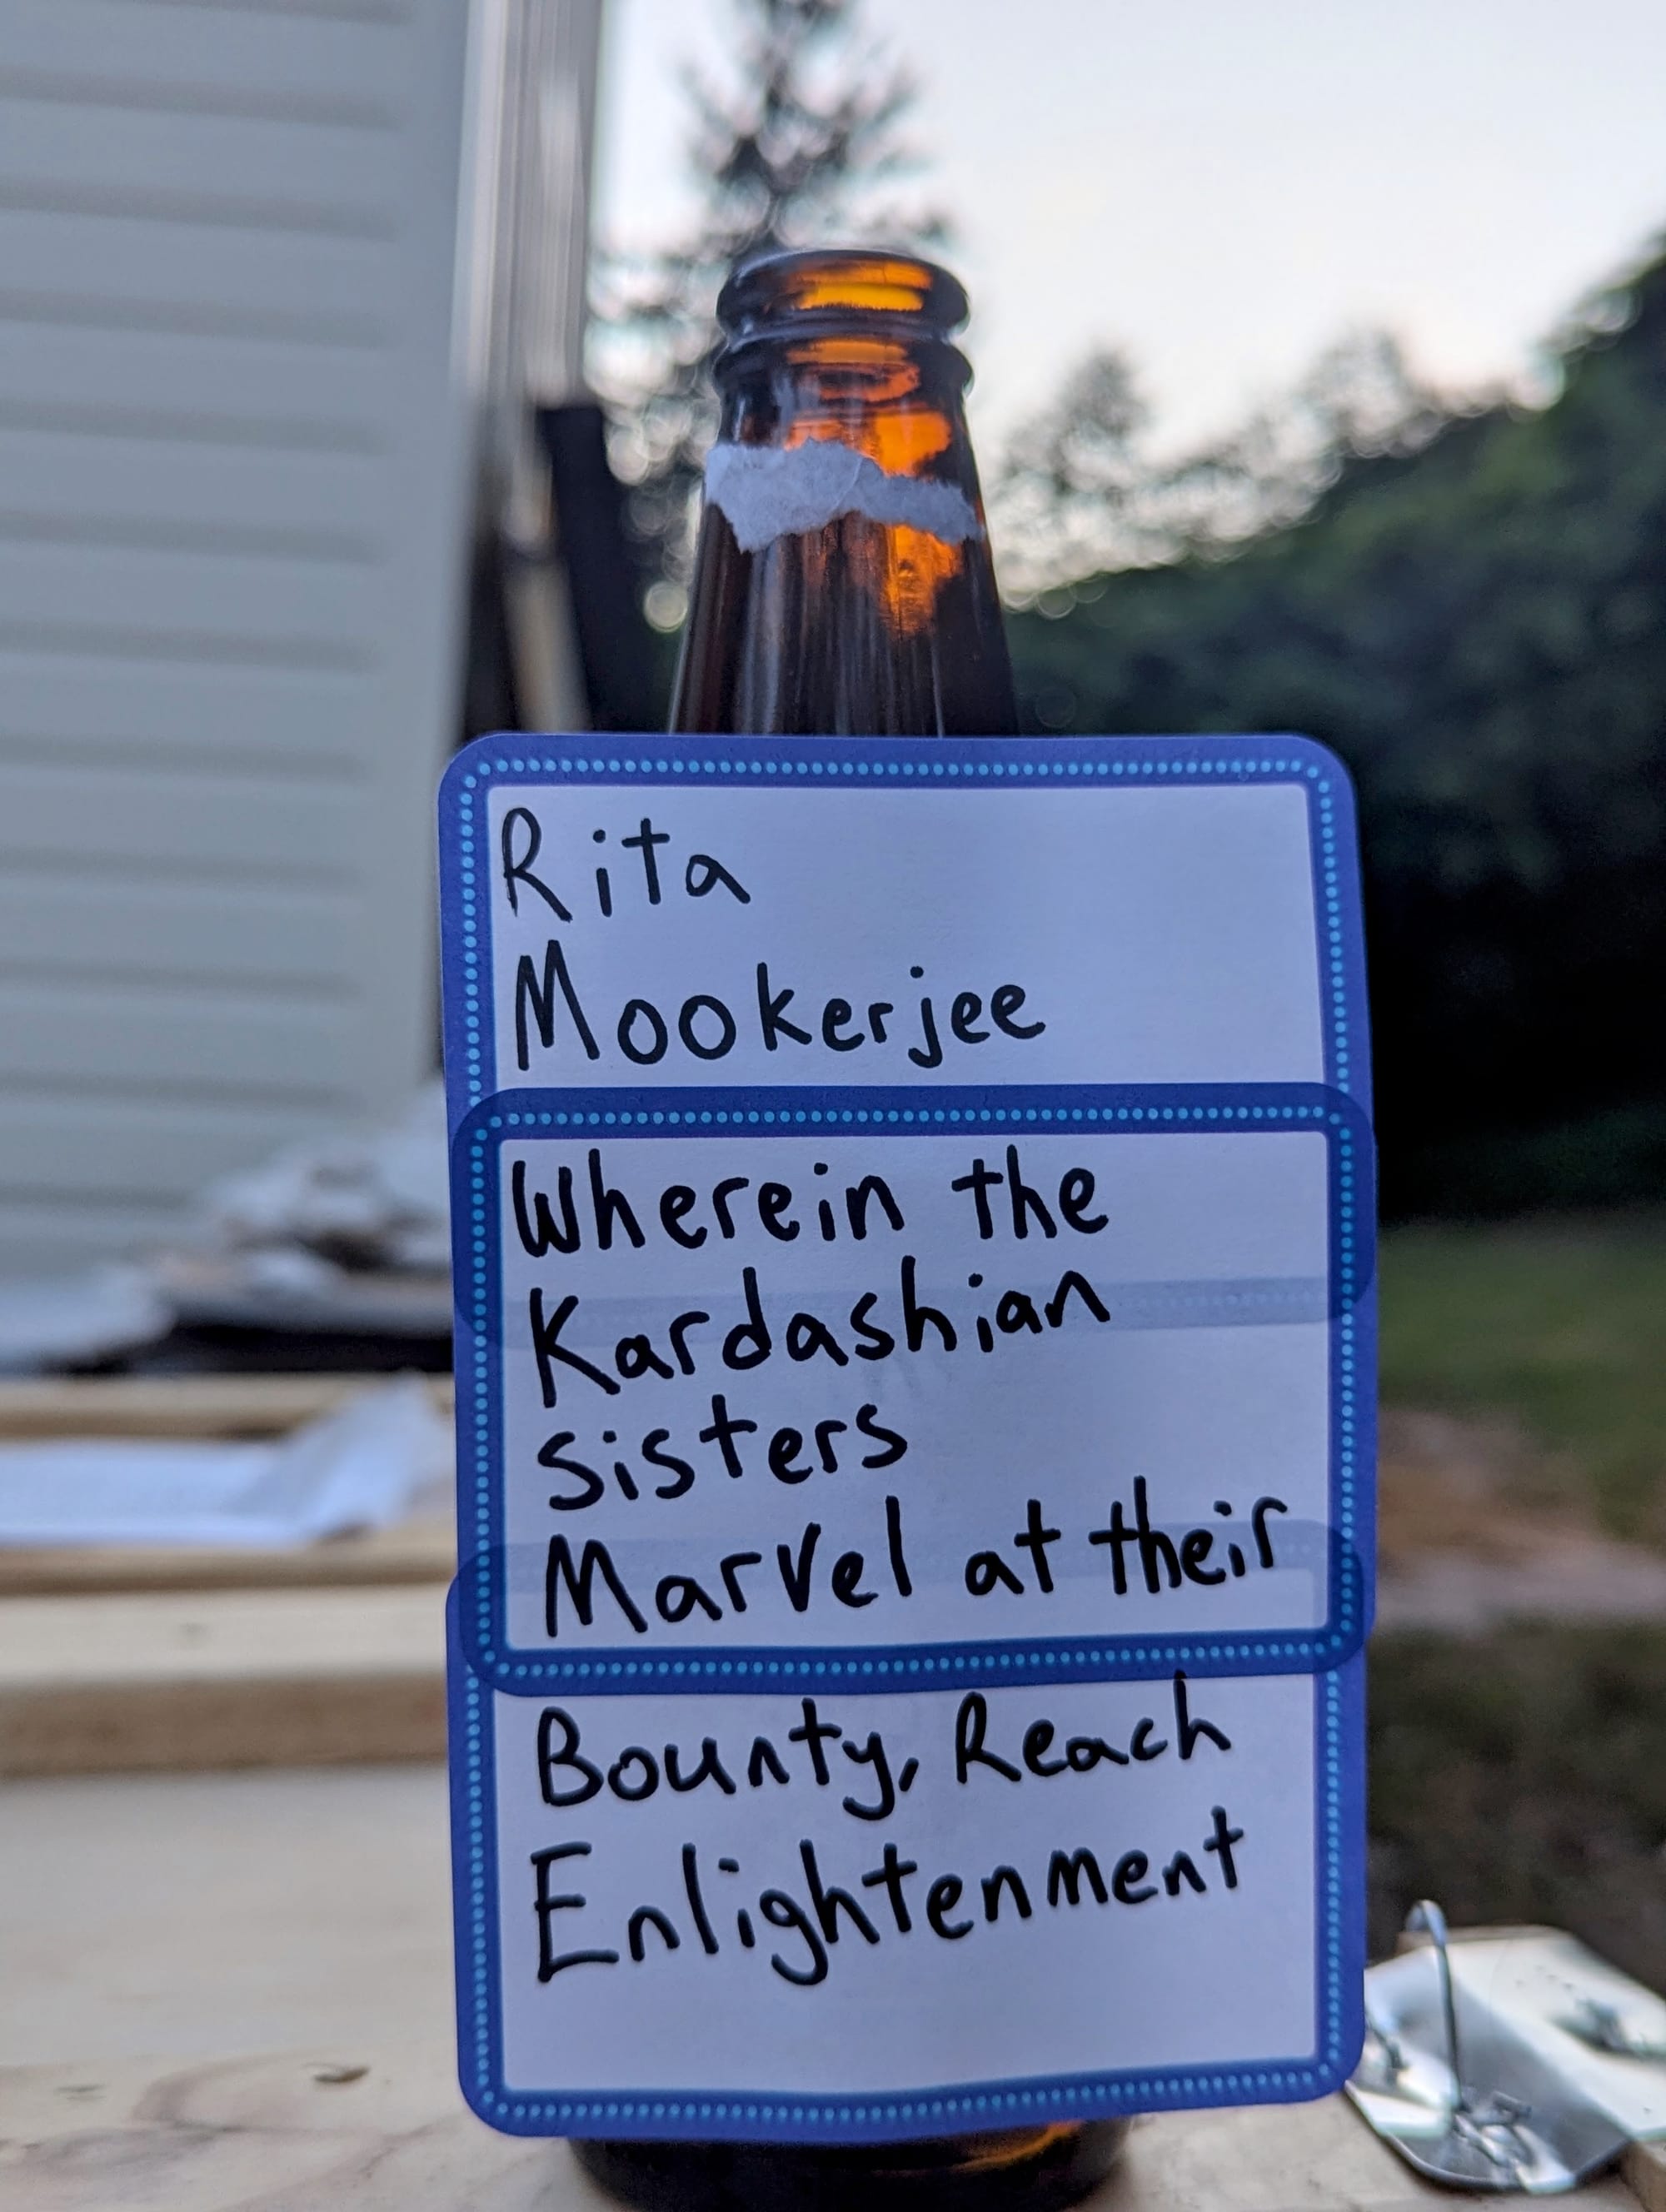 Rita
Mookerjee
Wherein the
Kardashian
Sisters
Marvel at their
Bounty, Reach
Enlightenment